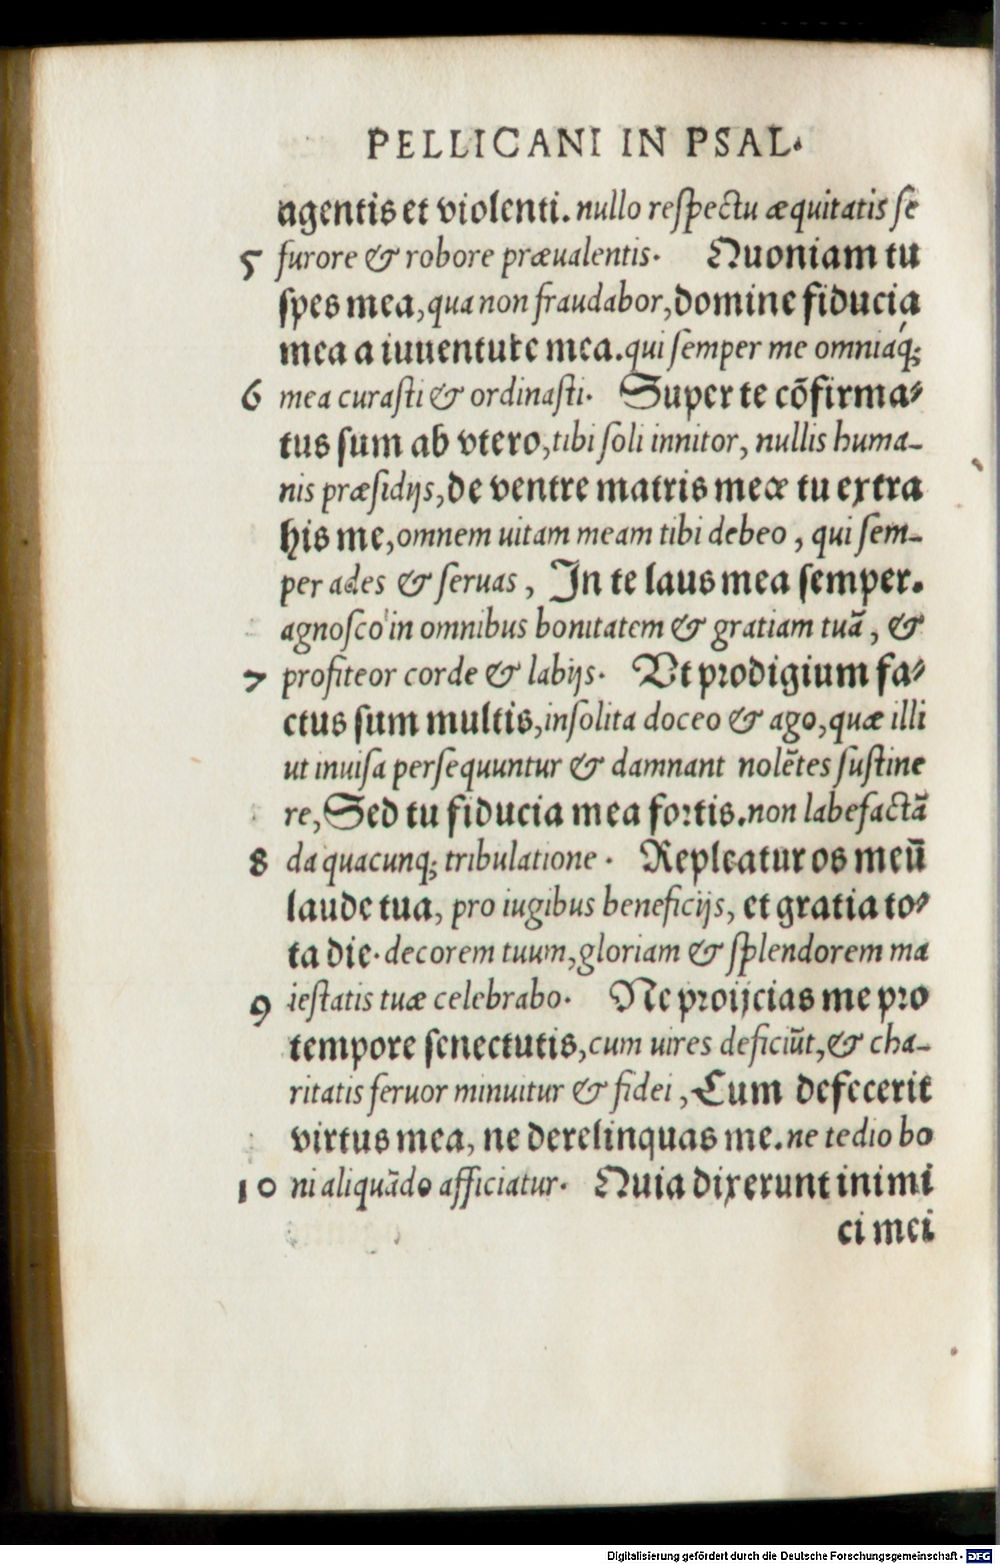 PELLICANI IN PSAL.
agentis et violenti. nullo reſpectu æquitatis ſe
5 furore & robore præualentis. Quoniam tu
ſpes mea, qua non fraudabor, domine fiducia
mea a iuuentute mea. qui ſemper me omniaq́;
6 mea curaſti & ordinaſti. Super te cõfirma⸗
tus ſum ab vtero, tibi ſoli innitor, nullis huma-
nis præſidijs, de ventre matris meæ tu extra
his me, omnem uitam meam tibi debeo, qui ſem-
per ades & ſeruas, In te laus mea ſemper.
agnoſco in omnibus bonitatem & gratiam tuã, &
7 profiteor corde & labijs. Vt prodigium fa⸗
ctus ſum multis, inſolita doceo & ago, quæ illi
ut inuiſa perſequuntur & damnant nolẽtes ſuſtine
re, Sed tu fiducia mea foꝛtis. non labefactã
8 da quacunq; tribulatione. Repleatur os meũ
laude tua, pro iugibus beneficijs, et gratia to⸗
ta die. decorem tuum, gloriam & ſplendorem ma
9 ieſtatis tuæ celebrabo. Ne pꝛoijcias me pꝛo
tempore ſenectutis, cum uires deficiũt, & cha-
ritatis feruor minuitur & fidei, Cum defecerit
virtus mea, ne derelinquas me. ne tedio bo
10 ni aliquãdo afficiatur. Quia dixerunt inimi
ci mei
Digitalisierung gefördert durch die Deutsche Forschungsgemeinschaft - DFG